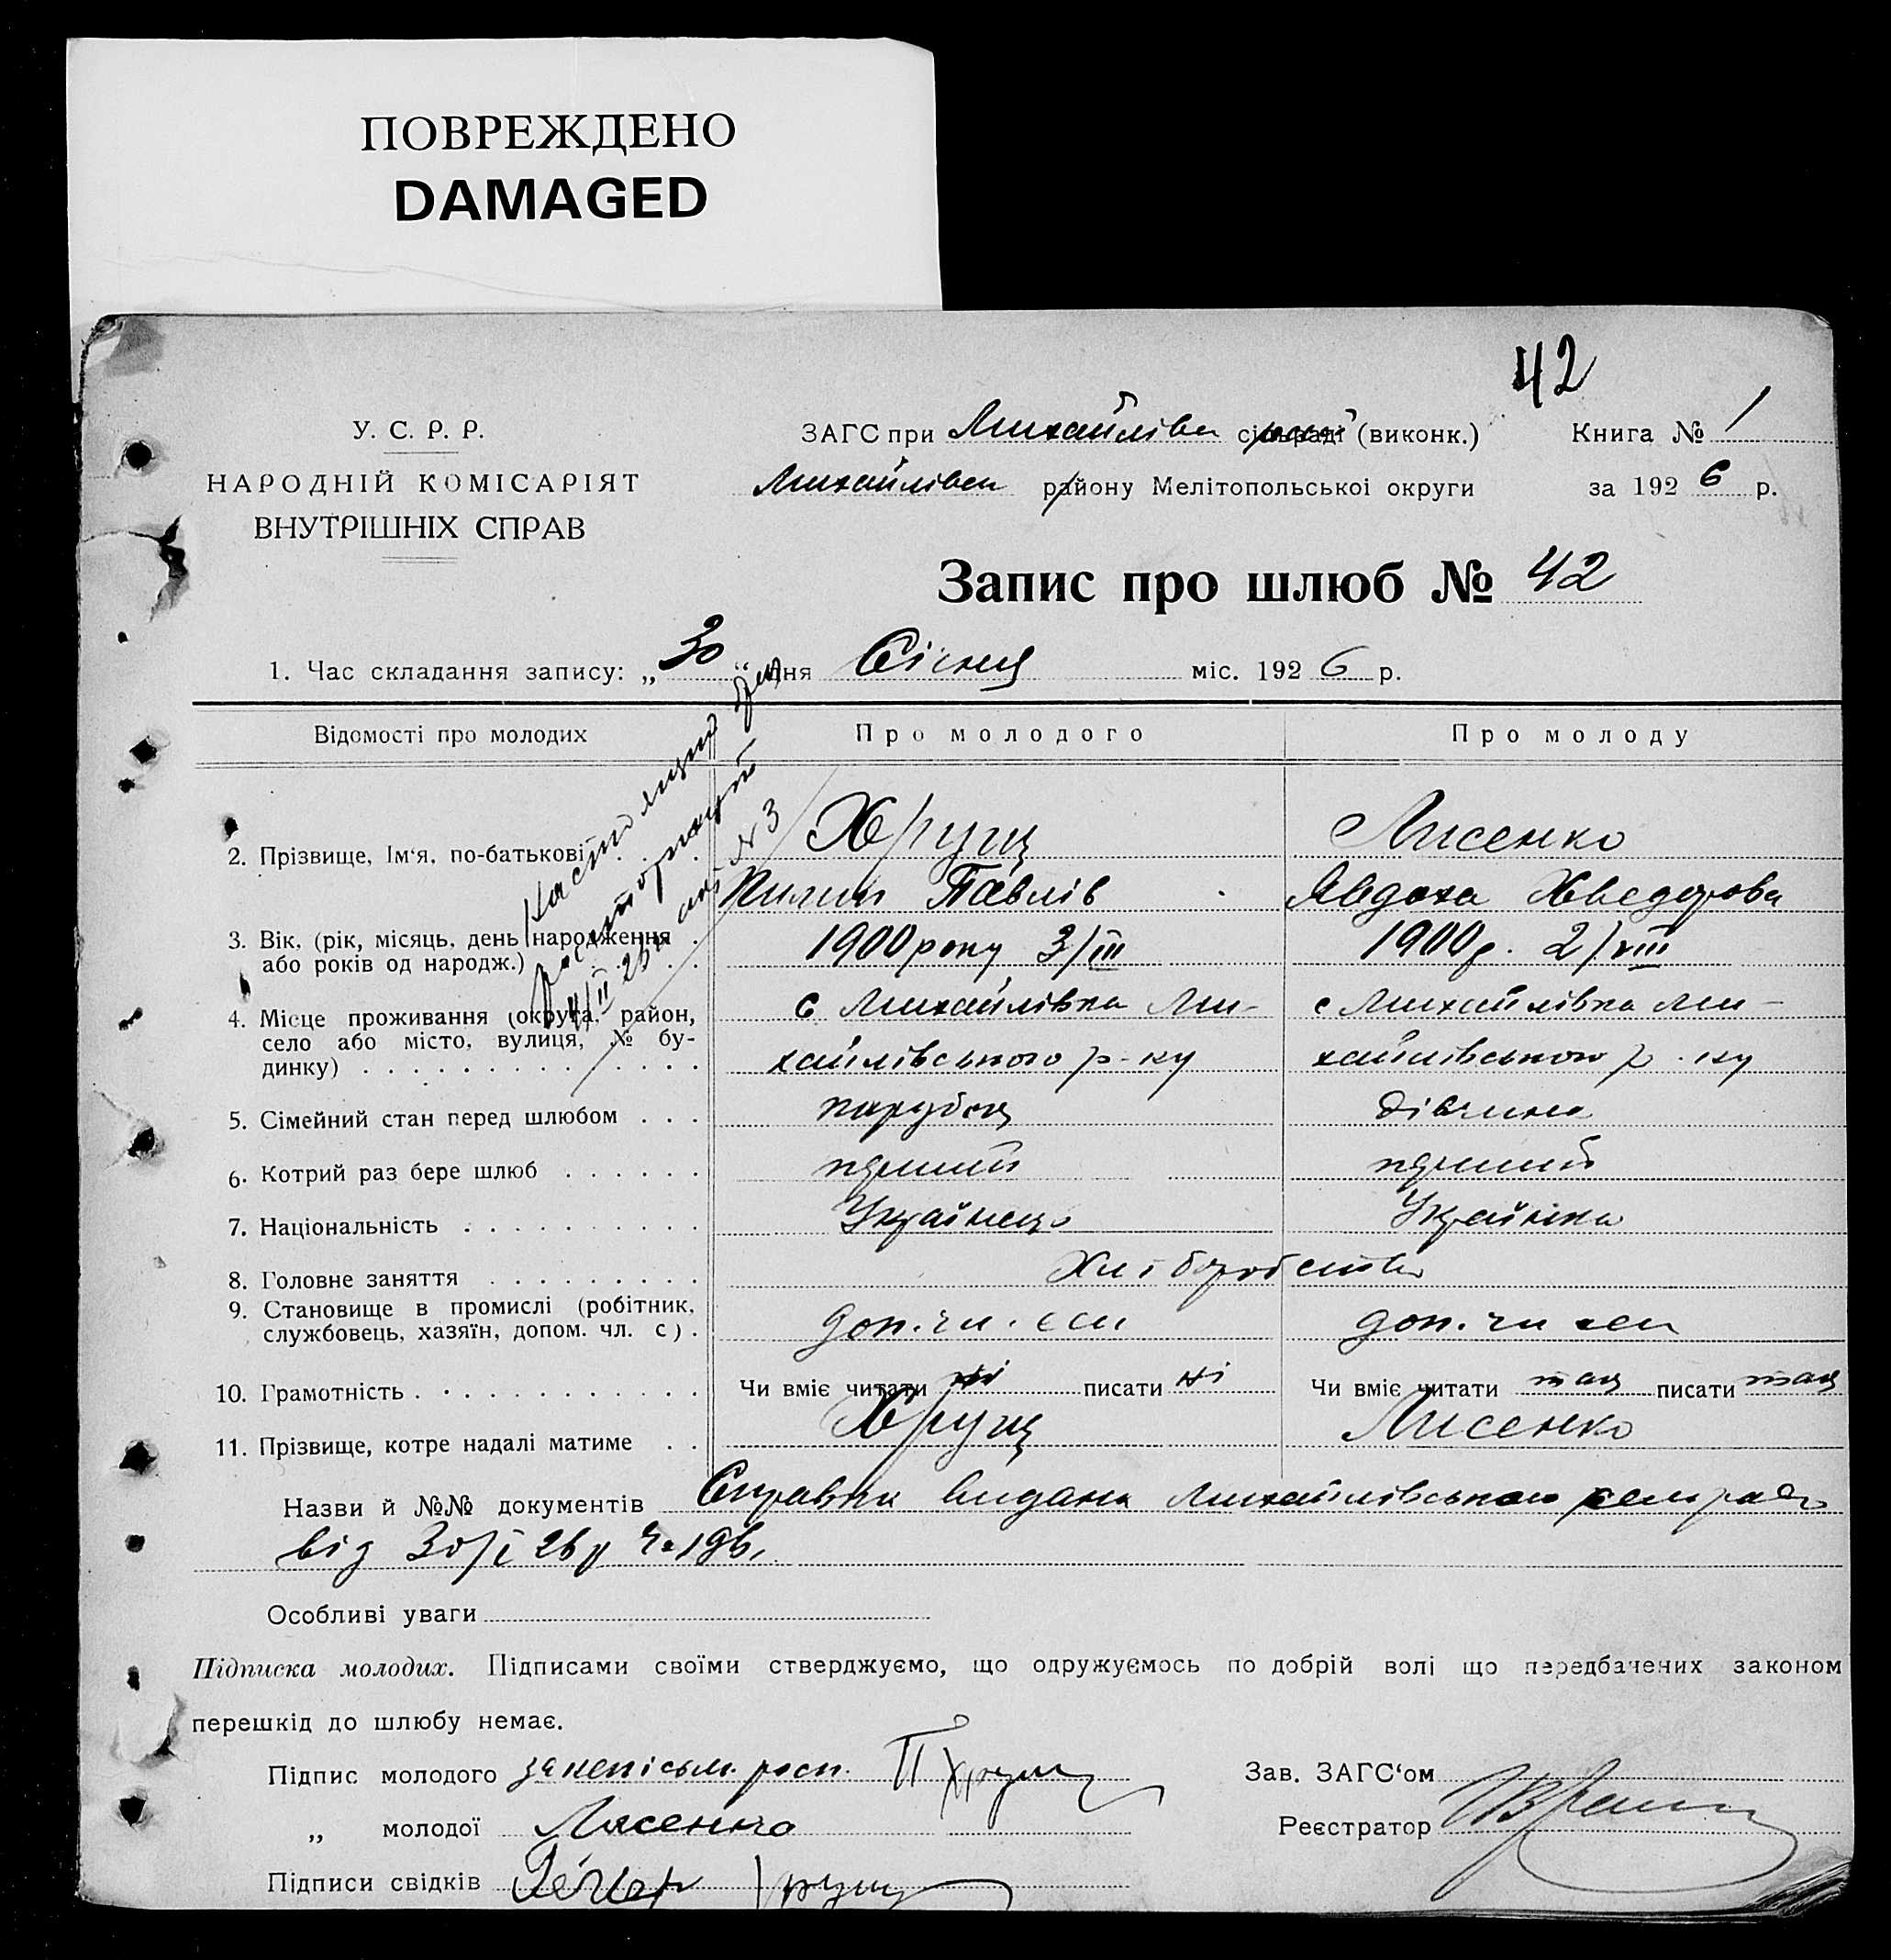 ПОВРЕЖДЕНО
DAMAGED
42
У. С. Р. Р.
НАРОДНІЙ КОМІСАРІЯТ
ВНУТРІШНІХ СПРАВ
ЗАГС при Михайлівськ сільраді (виконк.)
Книга № 1
Михайлівськ району Мелітопольськоі округи
за 1926 р.
Запис про шлюб № 42
1. Час складання запису: „30“ дня Січня міс. 1926 р.
Відомості про молодих Про молодого Про молоду
2. Прізвище, Ім‘я, по-батькові Хрущ Лисенко
Пилип Павлів Явдоха Хведорова
3. Вік, (рік, місяць, день народження 1900 року 3/III 1900 р. 2/VIII
або років од народж.)
4. Місце проживання (округа, район, с Михайлівка Ми- с Михайлівка Ми-
село або місто, вулиця, № бу- хайлівського р-ну хайлівського р-ну
динку)
5. Сімейний стан перед шлюбом парубок дівчина
6. Котрий раз бере шлюб перший перший
7. Національність Українець Українка
8. Головне заняття Хліборобство
9. Становище в промислі (робітник, доп. чл. сем доп. чл сем
службовець, хазяїн, допом. чл. с)
10. Грамотність Чи вміє читати ні писати ні Чи вміє читати так писати так
11. Прізвище, котре надалі матиме Хрущ Лисенко
Настоящий брак
расторгнут
4/II 26 р. акт № 3
Назви й №№ документів Справка видана Михайлівською сельрадою
від 30/I 26 р
Особливі уваги
Підписка молодих. Підписами своїми стверджуємо, що одружуємось по добрій волі що передбачених законом
перешкід до шлюбу немає.
Підпис молодого за неписьм. росп. П Хрущ
Зав. ЗАГС‘ом
„ молодої Лисенко
Реєстратор
Підписи свідків Хрущ